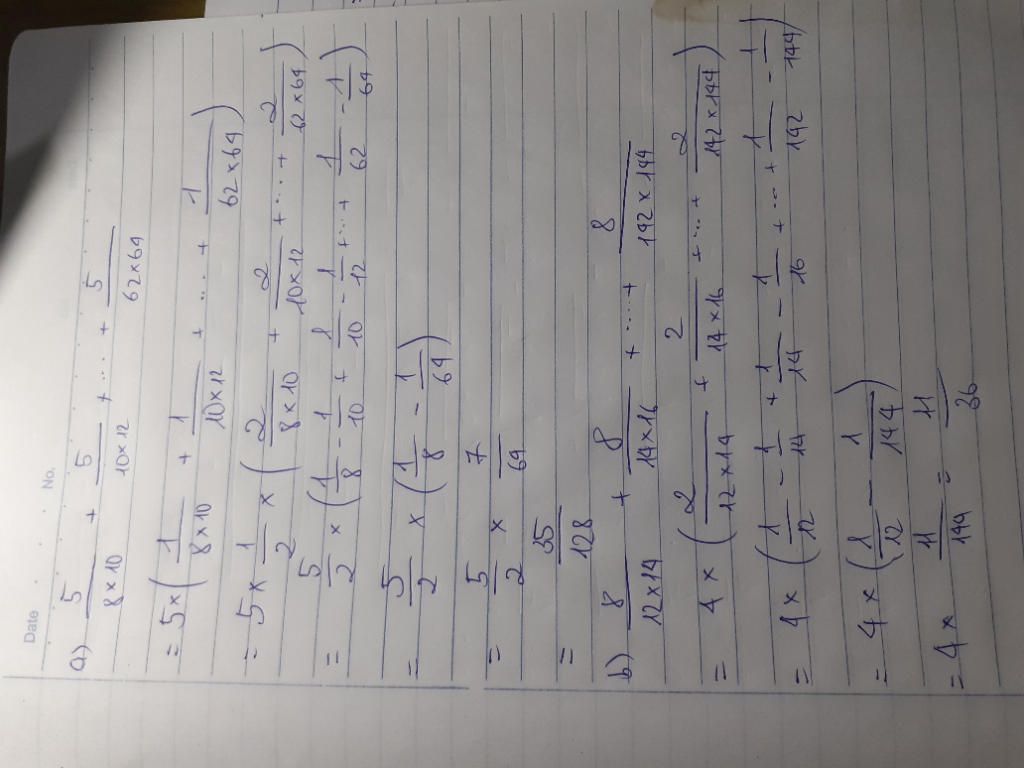 Date No.
a) 5/(8×10) + 5/(10×12) + ... + 5/(62×64)
= 5×(1/(8×10) + 1/(10×12) + ... + 1/(62×64))
= 5×1/2×(2/(8×10) + 2/(10×12) + ... + 2/(62×64))
= 5/2×(1/8 - 1/10 + 1/10 - 1/12 + ... + 1/62 - 1/64)
= 5/2×(1/8 - 1/64)
= 5/2×7/64
= 35/128
b) 8/(12×14) + 8/(14×16) + ..... + 8/(142×144)
= 4×(2/(12×14) + 2/(14×16) + ... + 2/(142×144))
= 4×(1/12 - 1/14 + 1/14 - 1/16 + ... + 1/142 - 1/144)
= 4×(1/12 - 1/144)
= 4×11/144 = 11/36